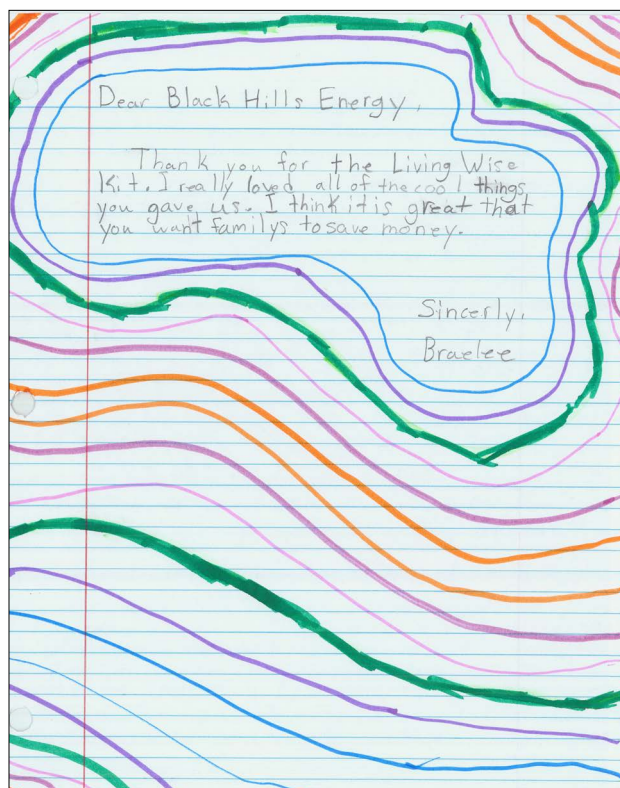 Dear Black Hills Energy,
Thank you for the Living Wise
Kit. I really loved all of the cool things
you gave us. I think it is great that
you want familys to save money.
Sincerly,
Braelee